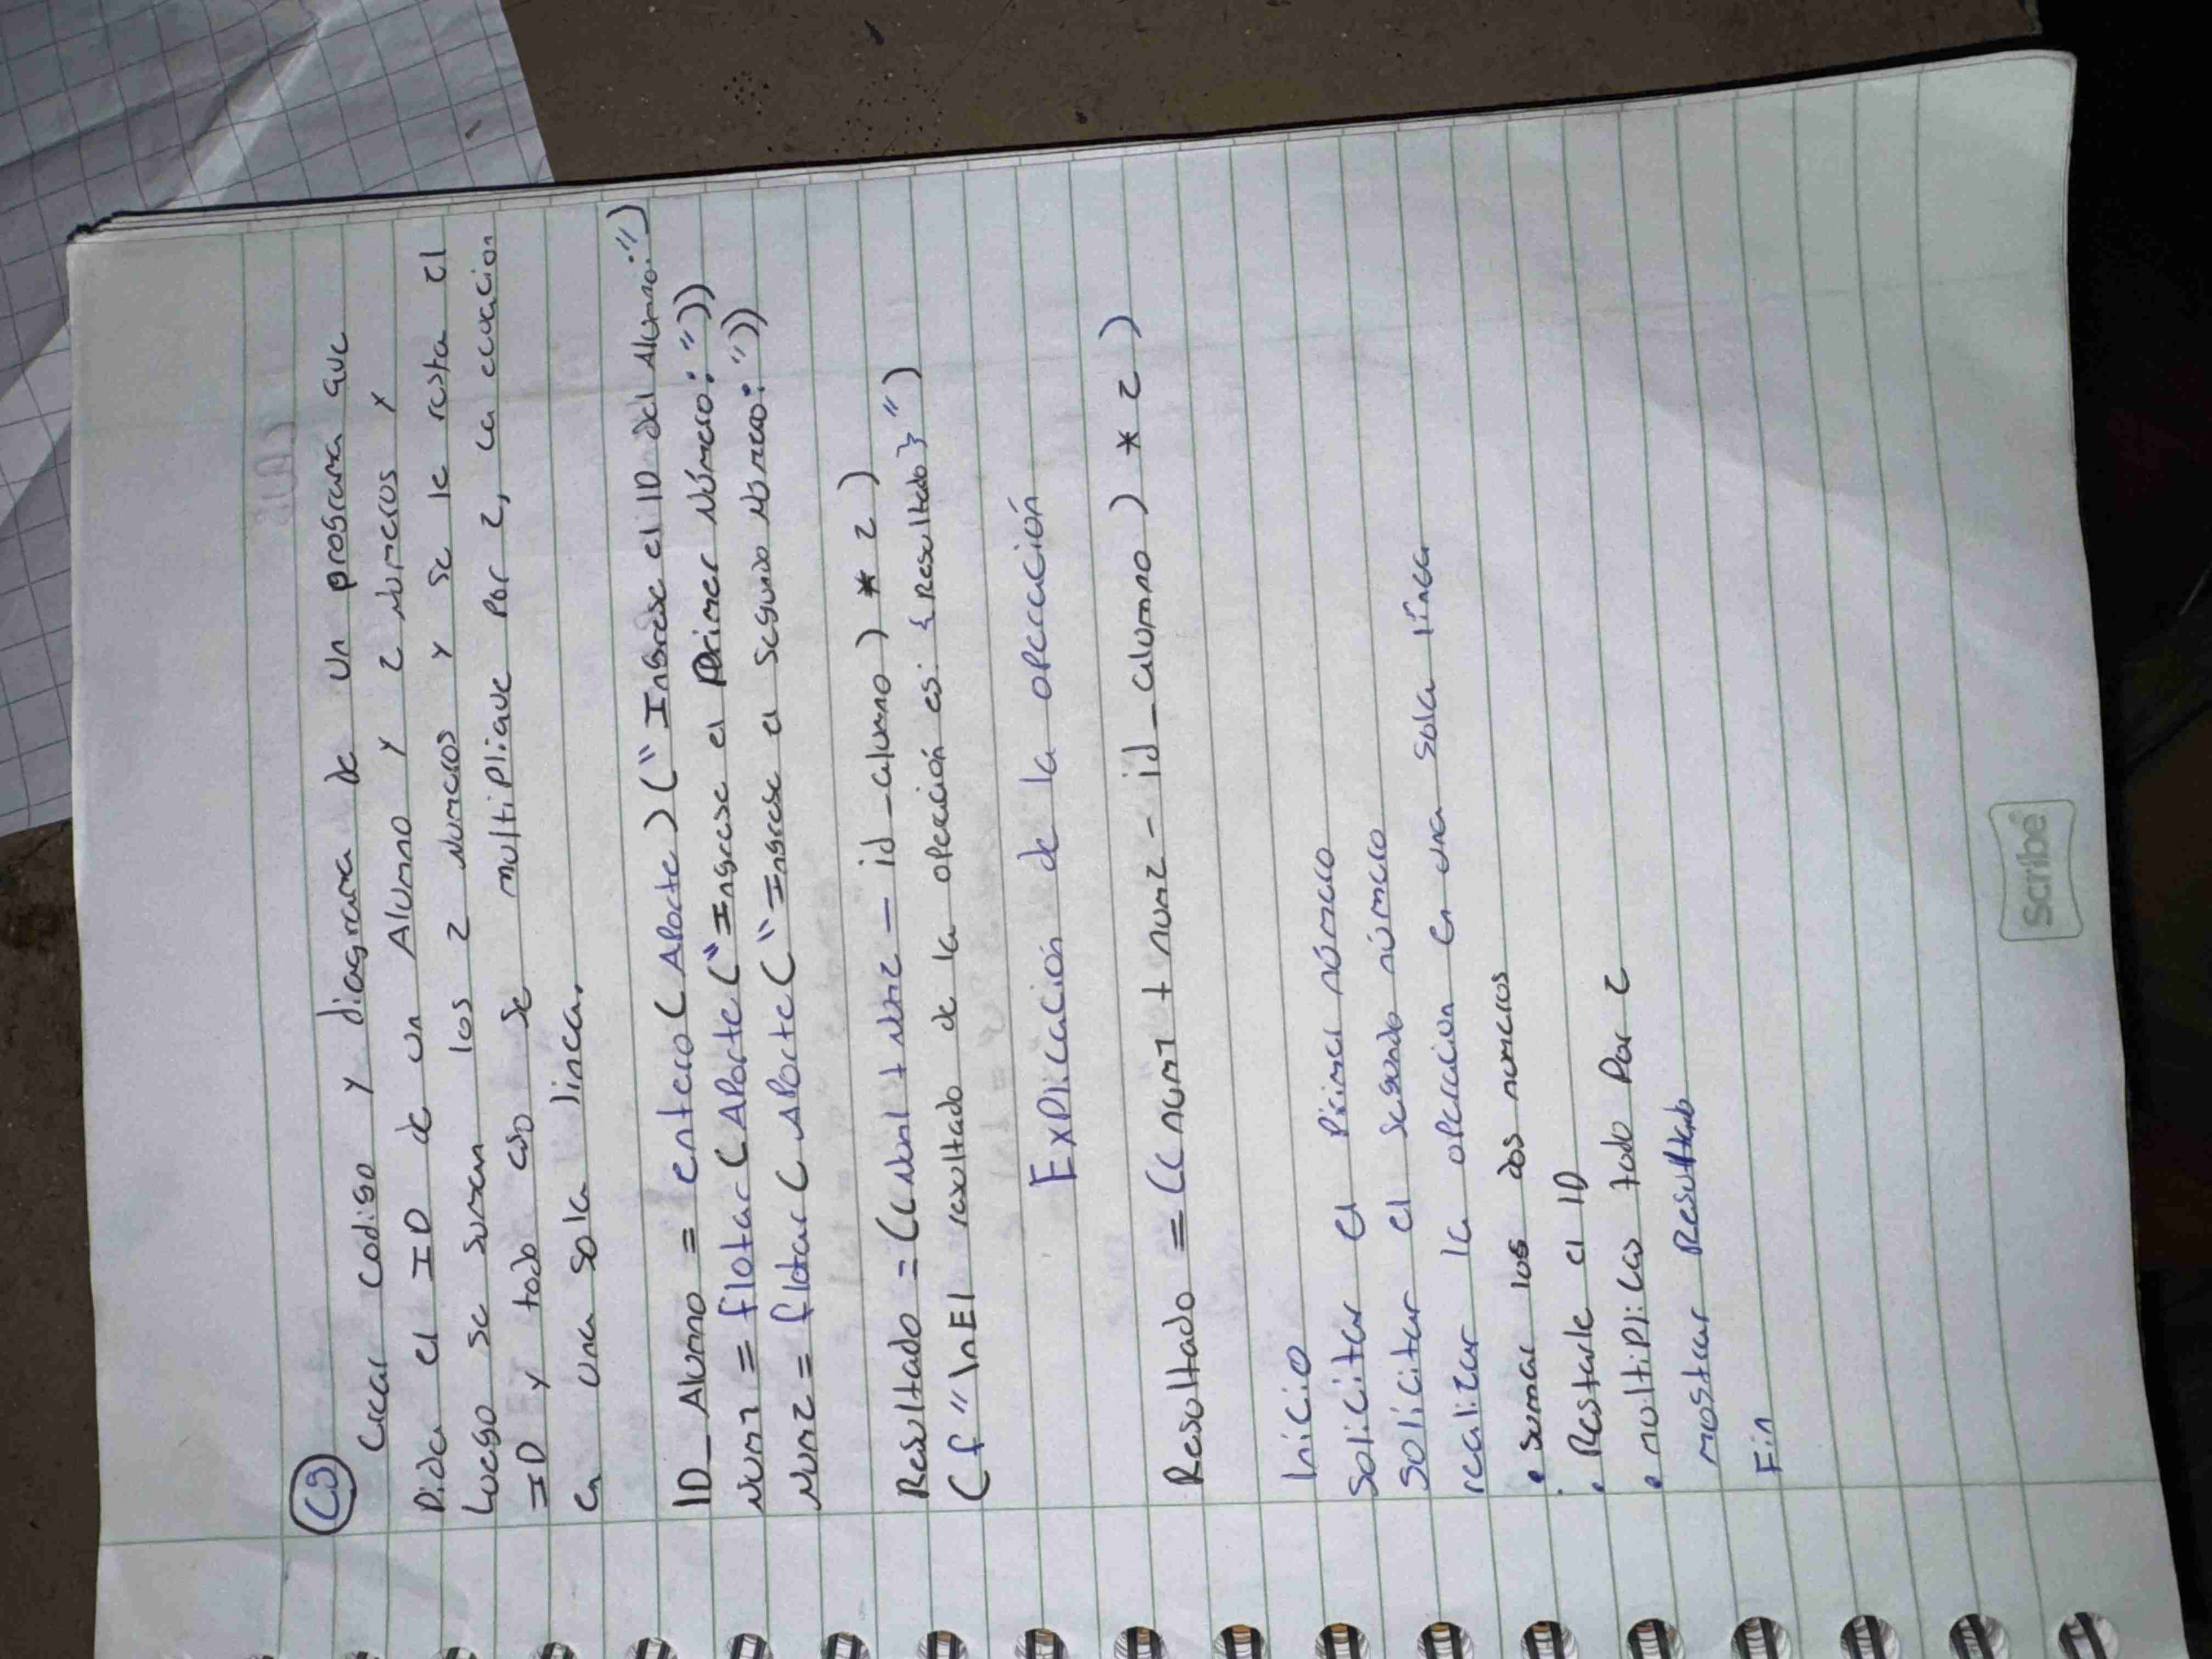 C9
Crear codigo y diagrama de un programa que
Pida el ID de un Alumno y 2 numeros y
Luego se suman los 2 numeros y se le resta el
ID y todo eso se multiplique por 2, la ecuacion
en una sola linea.
ID_Alumno = entero (Aporte) ("Ingrese el ID del Alumno:")
Num1 = flotar (Aporte ("Ingrese el Primer Número:"))
Num2 = flotar (Aporte ("Ingrese el segundo Número:"))
Resultado = ((Num1 + Num2 - id_alumno) * 2)
(f "\nEl resultado de la operación es: {Resultado}")
Explicación de la operación
Resultado = ((num1 + num2 - id_alumno) * 2)
Inicio
Solicitar el Primer número
Solicitar el segundo número
realizar la operacion en una sola línea
• sumar los dos numeros
• Restarle el ID
• multiplicas todo Por 2
mostrar Resultado
Fin
Scribe